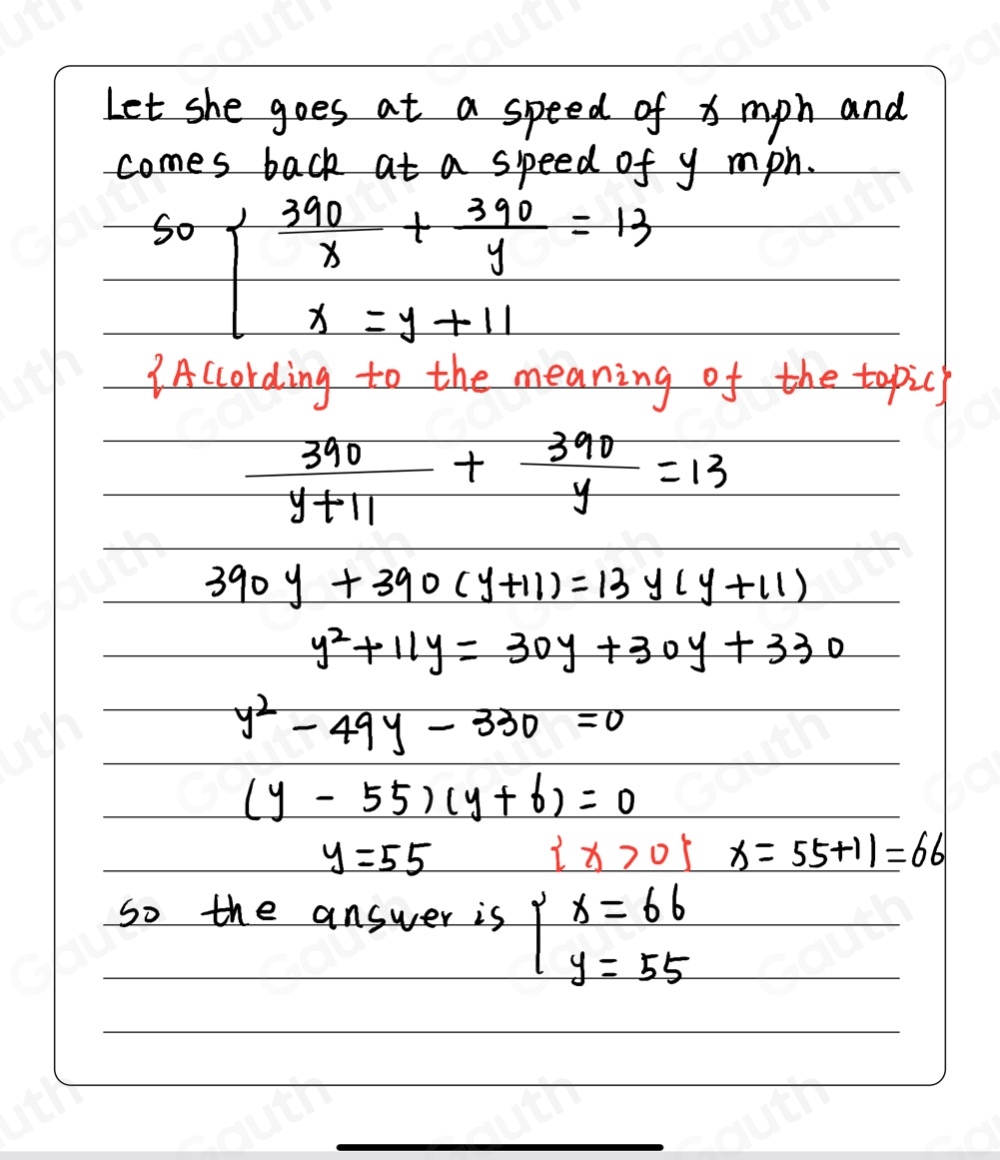 Let she goes at a speed of x mph and
comes back at a speed of y mph.
so { 390/x + 390/y = 13
x = y + 11
{According to the meaning of the topic}
390/(y+11) + 390/y = 13
390y + 390(y+11) = 13y(y+11)
y² + 11y = 30y + 30y + 330
y² - 49y - 330 = 0
(y - 55)(y + 6) = 0
y = 55 {x > 0} x = 55+11 = 66
so the answer is { x = 66
y = 55
Gauth